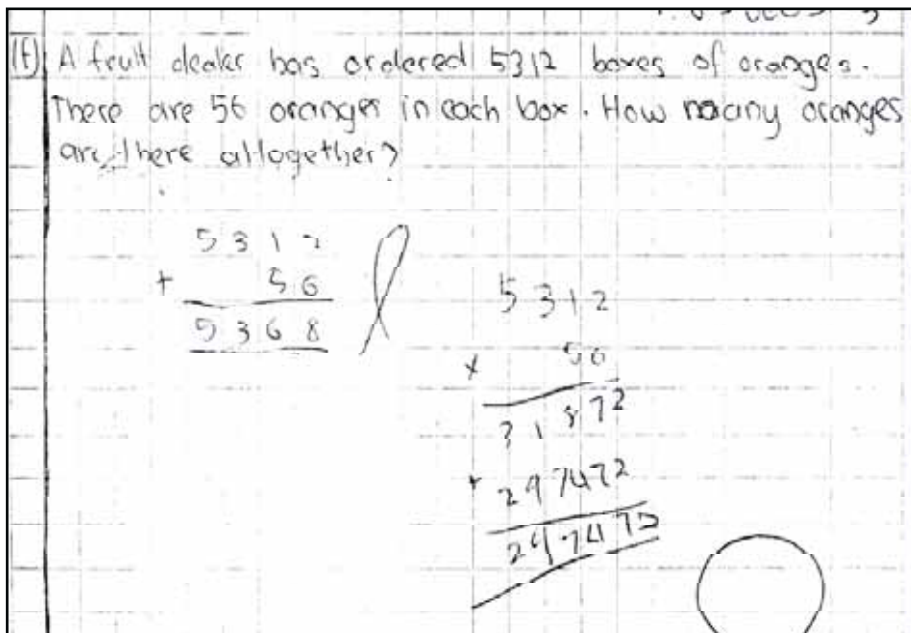 (f) A fruit dealer has ordered 5312 boxes of oranges.
There are 56 oranges in each box. How many oranges
are there alltogether?
5 3 1 2
+ 56
5 3 6 8
5 3 1 2
x 56
3 1 8 7 2
+ 297472
297472